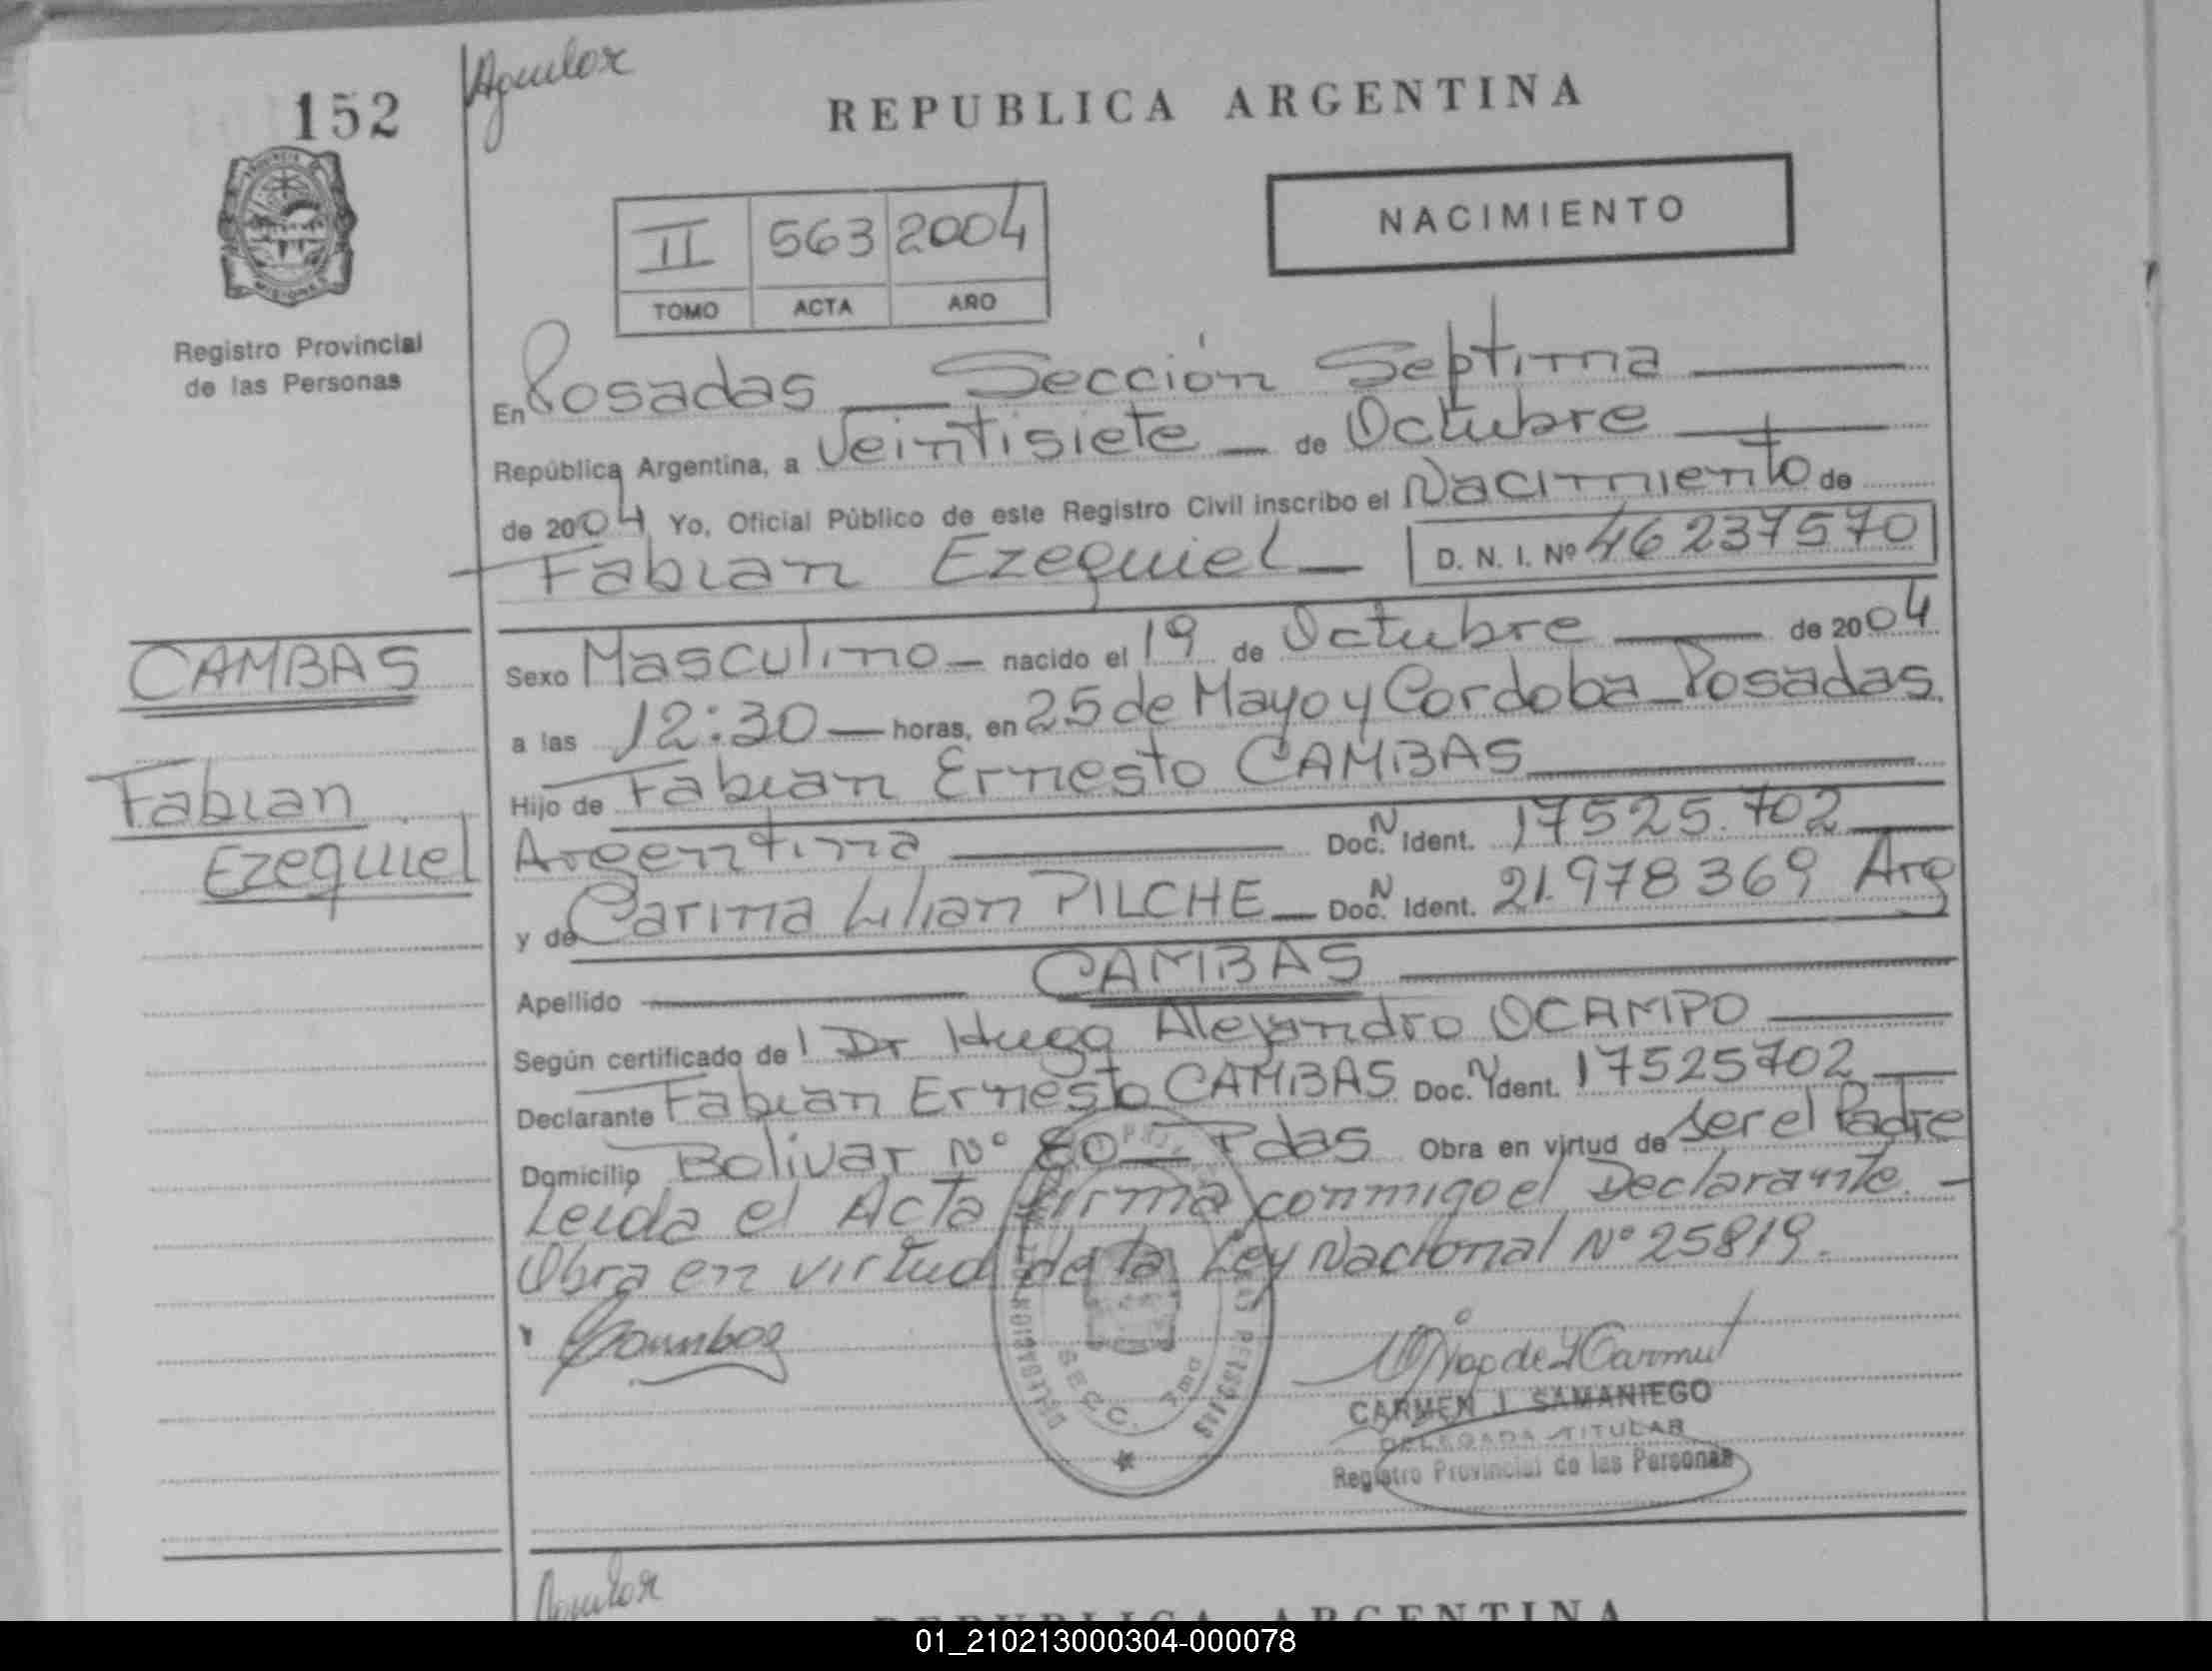 152
Aguilar
REPUBLICA ARGENTINA
NACIMIENTO
II 563 2004
TOMO ACTA AÑO
Registro Provincial
de las Personas
En Posadas — Sección Septima
República Argentina, a Veintisiete — de Octubre
de 2004 Yo, Oficial Público de este Registro Civil inscribo el Nacimiento de
Fabian Ezequiel — D. N. I. Nº 46237570
CAMBAS
Fabian
Ezequiel
Sexo Masculino — nacido el 19 de Octubre — de 2004
a las 12:30 — horas, en 25 de Mayo y Cordoba — Posadas.
Hijo de Fabian Ernesto CAMBAS
Argentina — Doc. N Ident. 17525.702
y de Carina Lilian PILCHE — Doc. N Ident. 21.978369 Arg
Apellido — CAMBAS
Según certificado de l Dr Hugo Alejandro OCAMPO
Declarante Fabian Ernesto CAMBAS Doc. N Ident. 17525702
Domicilio Bolivar Nº 80 — Pdas Obra en virtud de ser el Padre
Leida el Acta firma conmigo el Declarante. —
Obra en virtud de la Ley Nacional Nº 25819.
SECC. 7ma
CARMEN J. SAMANIEGO
DELEGADA TITULAR
Registro Provincial de las Personas
Aguilar
REPUBLICA ARGENTINA
01_210213000304-000078